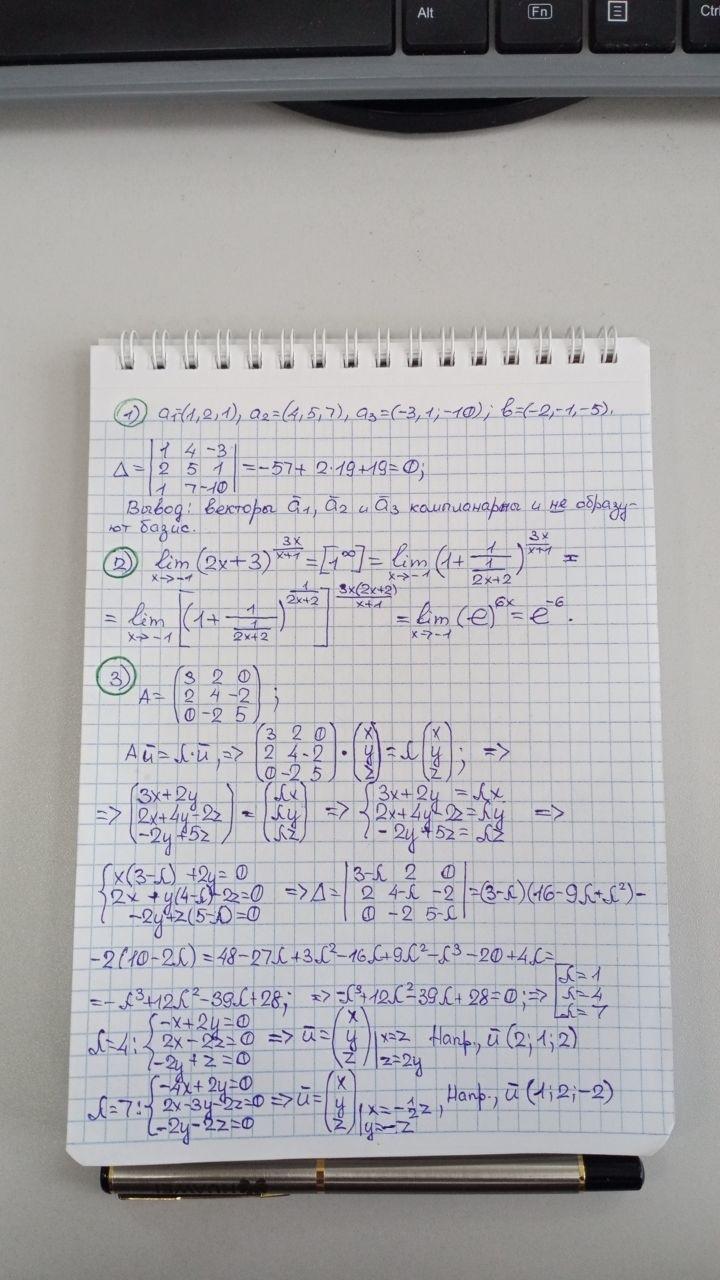 Alt
Fn
Ctrl
1) a₁=(1,2,1), a₂=(4,5,7), a₃=(-3,1,-10); b=(-2,-1,-5).
Δ = |1 4 -3|
|2 5 1| = -57 + 2·19 + 19 = 0;
|1 7 -10|
Вывод: векторы ā₁, ā₂ и ā₃ компланарны и не образу-
ют базис.
2) lim x→-1 (2x+3)^(3x/(x+1)) = [1^∞] = lim x→-1 (1 + 1/(1/(2x+2)))^(3x/(x+1)) =
= lim x→-1 [(1 + 1/(1/(2x+2)))^(1/(2x+2))]^(3x(2x+2)/(x+1)) = lim x→-1 (e)^(6x) = e^(-6).
3) A = (3 2 0)
(2 4 -2) ;
(0 -2 5)
Aū = λ·ū, => (3 2 0; 2 4 -2; 0 -2 5) · (x; y; z) = λ (x; y; z); =>
=> (3x+2y; 2x+4y-2z; -2y+5z) = (λx; λy; λz) => {3x+2y = λx; 2x+4y-2z = λy; -2y+5z = λz =>
{x(3-λ) + 2y = 0; 2x + y(4-λ) - 2z = 0; -2y + z(5-λ) = 0 => Δ = |3-λ 2 0; 2 4-λ -2; 0 -2 5-λ| = (3-λ)(16-9λ+λ²) -
-2(10-2λ) = 48-27λ+3λ²-16λ+9λ²-λ³-20+4λ =
= -λ³+12λ²-39λ+28; => -λ³+12λ²-39λ+28=0; => [λ=1; λ=4; λ=7
λ=4: {-x+2y=0; 2x-2z=0; -2y+z=0 => ū = (x; y; z) | x=z; z=2y Напр., ū(2;1;2)
λ=7: {-4x+2y=0; 2x-3y-2z=0; -2y-2z=0 => ū = (x; y; z) | x=-1/2z; y=-z, Напр., ū(1;2;-2)